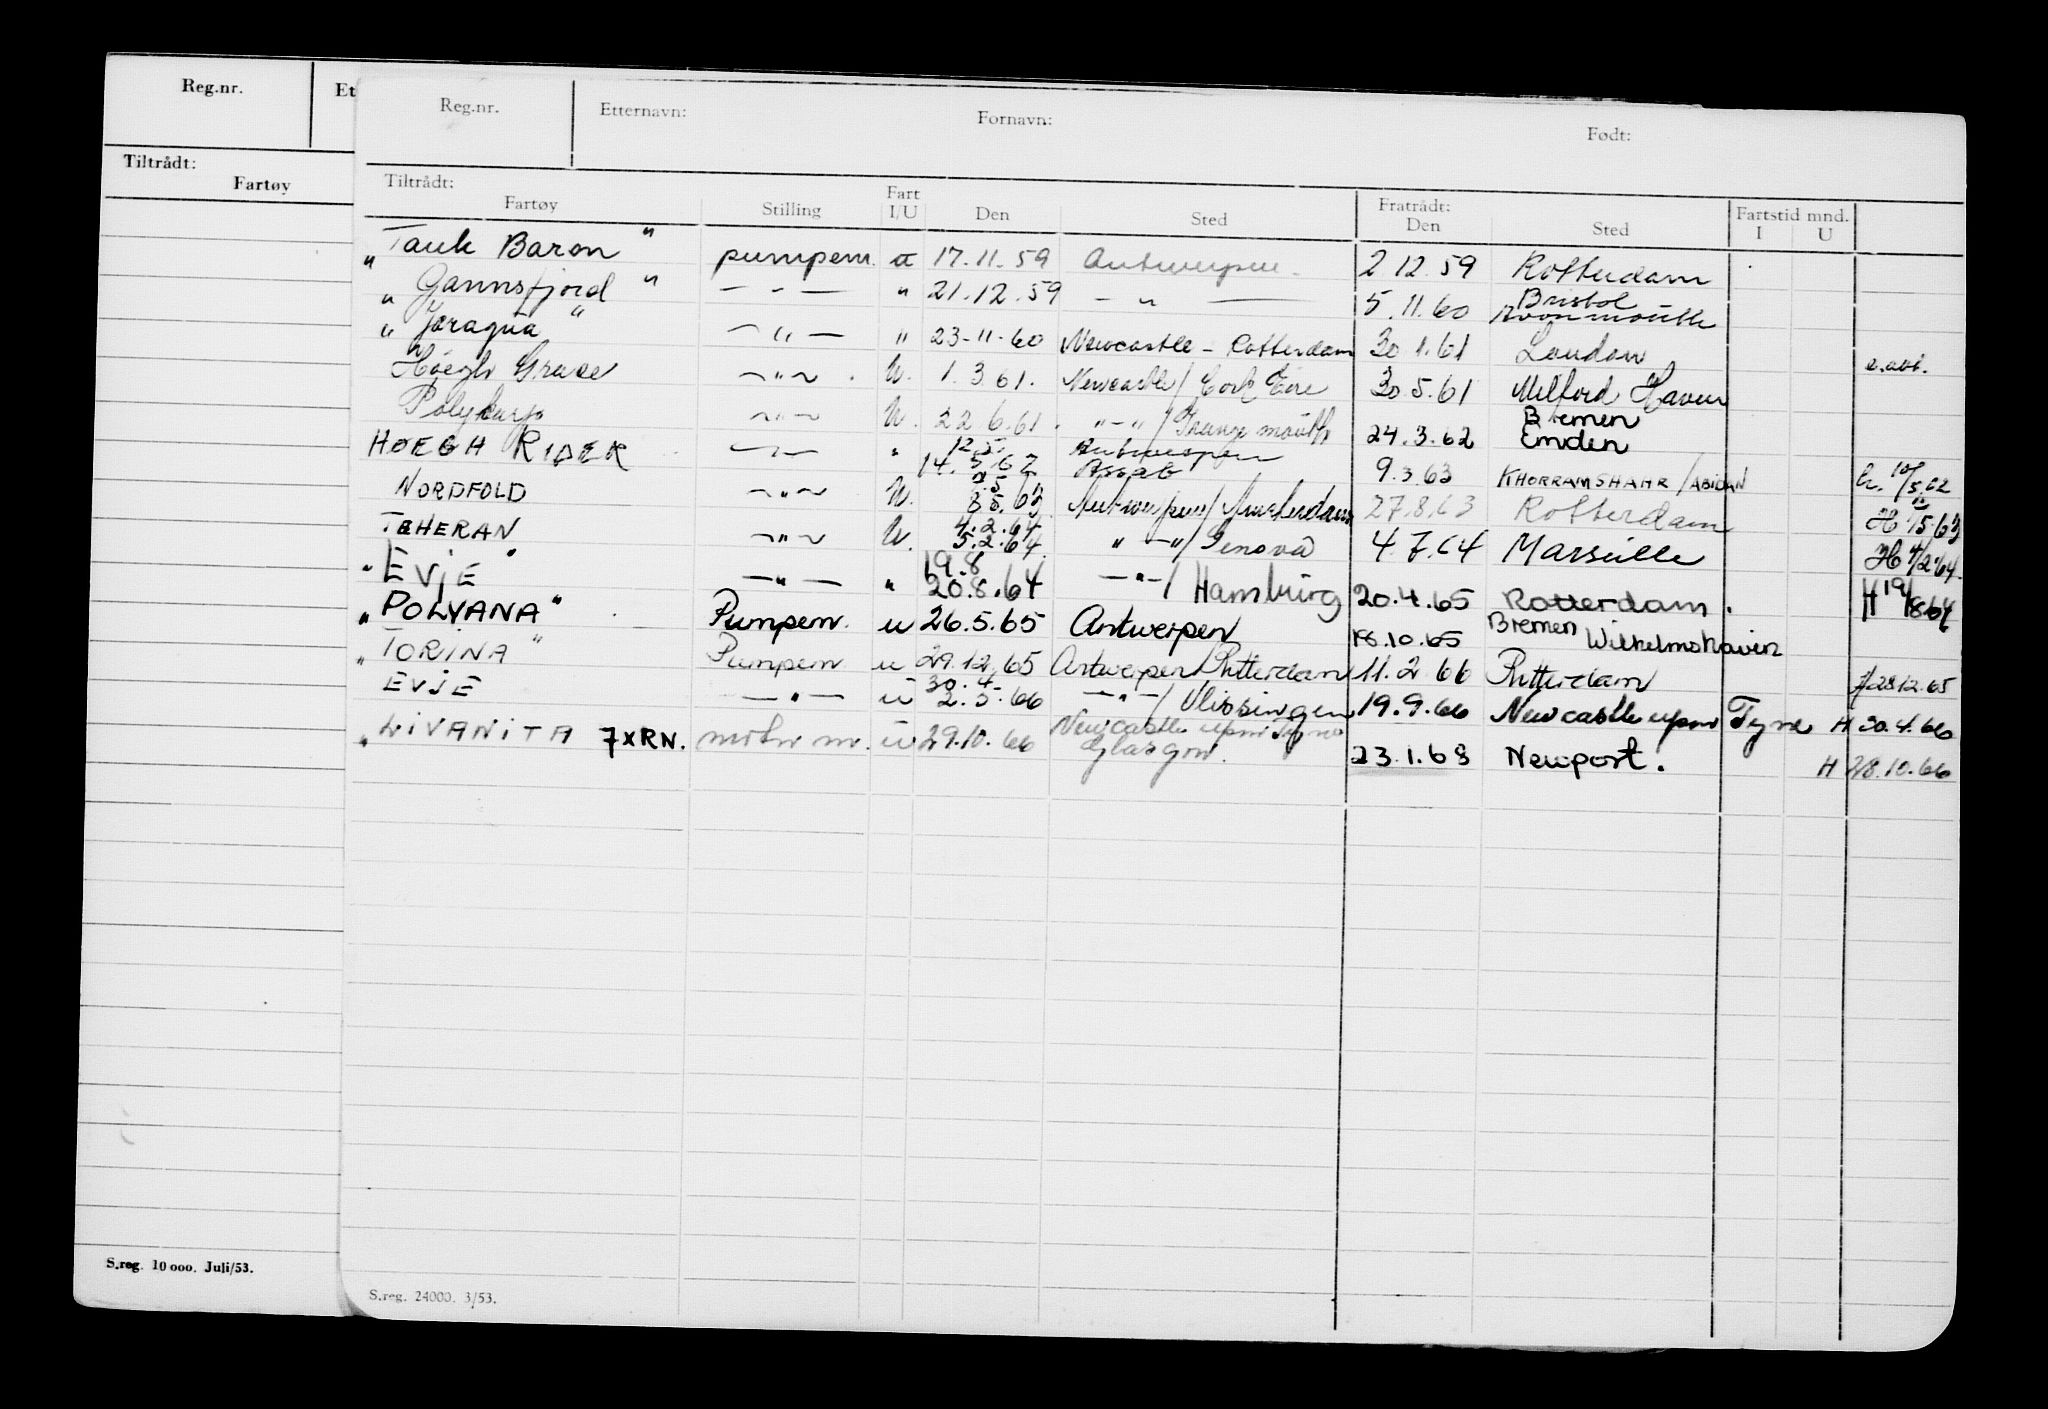 Reg.nr. Et
Tiltrådt:
Fartøy
S.reg. 10 000. Juli/53.
Reg.nr. Etternavn: Fornavn: Født:
Tiltrådt: Fratrådt: Fartstid mnd.
Fartøy Stilling Fart I/U Den Sted Den Sted I U
" Tank Baron " pumpem. u 17.11.59 Antwerpen. 2 12.59 Rotterdam
" Gannsfjord " — " — " 21.12.59 — " — 5.11.60 Bristol Avonmouth
" Jaragua " — " — " 23-11-60 Newcastle - Rotterdam 30.1.61 London
Höegh Grace — " — U. 1.3.61. Newcastle / Cork Eire 30.5.61 Milford Haven
Polykarp — " — U. 22.6.61. " — " / Grangemouth 24.3.62 Bremen Emden
HØEGH RIDER — " — " 12.5. 14.5.62 Antwerpen Assab 9.3.63 KHORRAMSHAHR / ABADAN 10/5.62
NORDFOLD — " — U. 8.5.63 Antwerpen / Amsterdam 27.8.63 Rotterdam H /5 63
TEHERAN — " — U. 4.2.64 5.2.64. " — " / Genova 4.7.64 Marseille H 4/2.64.
" EVJE " — " — " 19.8 20.8.64 — " — / Hamburg 20.4.65 Rotterdam. H 19/8 64
" POLYANA " Pumpem. u 26.5.65 Antwerpen 18.10.65 Bremen Wilhelmshaven
" TORINA " Pumpem u 29.12.65 Antwerpen / Rotterdam 11.2.66 Rotterdam H 28 12.65
EVJE — " — u 30.4. 2.5.66 — " — / Vlissingen 19.9.66 Newcastle upon Tyne H 30.4.66
" LIVANITA 7XRN. motor m. u 29.10.66 Newcastle upon Tyne Glasgow. 23.1.68 Newport. H 28.10.66
S.reg. 24000. 3/53.